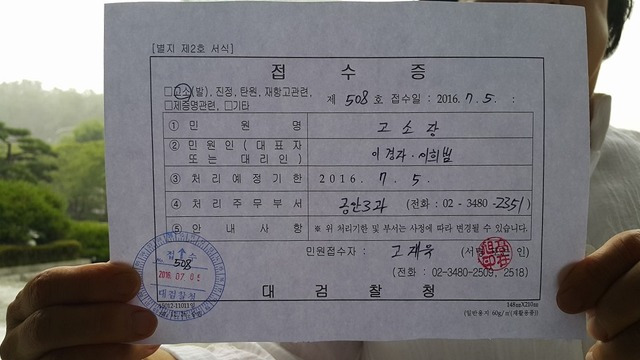 [별지 제2호 서식]
접 수 증
□고소(발), 진정, 탄원, 재항고관련,
□제증명관련, □기타
제 508 호 접수일 : 2016. 7. 5. :
① 민 원 명 고 소 장
② 민 원 인 ( 대 표 자 또 는 대 리 인 ) 이경자·이희범
③ 처 리 예 정 기 한 2016. 7. 5.
④ 처 리 주 무 부 서 공안3과 (전화 : 02 - 3480 -2351)
⑤ 안 내 사 항 ※ 위 처리기한 및 부서는 사정에 따라 변경될 수 있습니다.
민원접수자 : 고재욱 (서명 인)
(전화 : 02-3480-2509, 2518)
접 수
508
2016. 07. 05
대검찰청
대 검 찰 청
148㎜X210㎜
(일반용지 60g/㎡(재활용품))